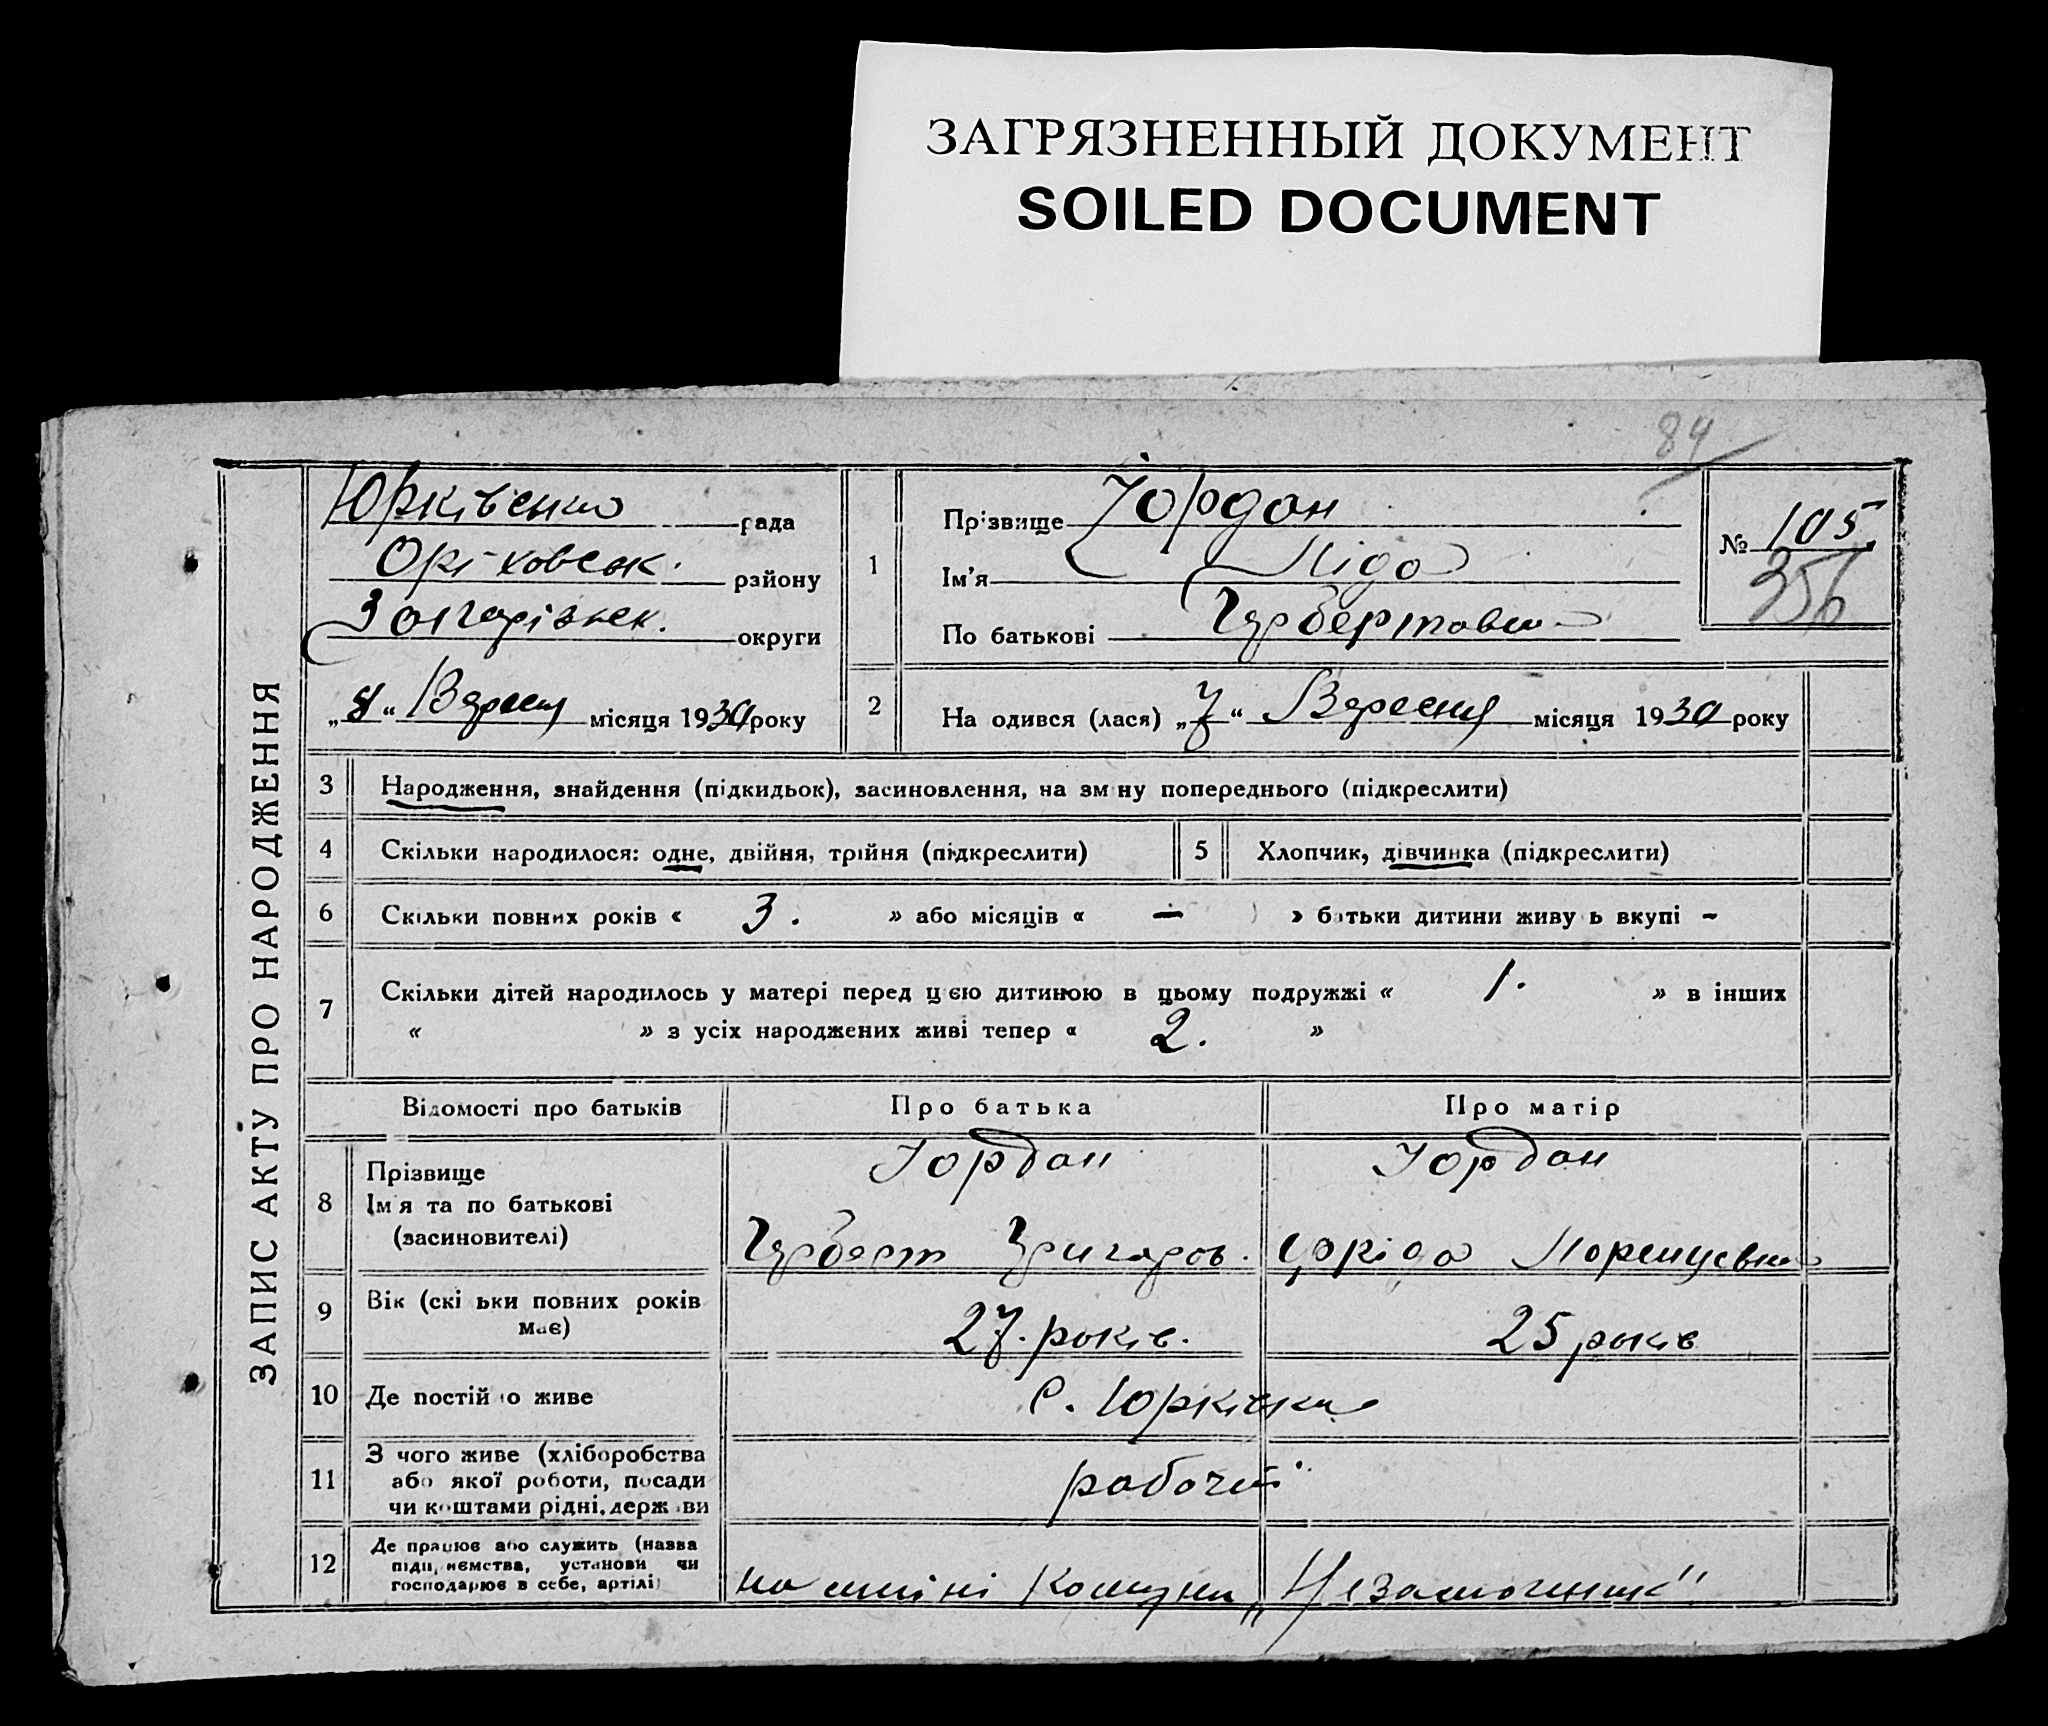 ЗАГРЯЗНЕННЫЙ ДОКУМЕНТ
SOILED DOCUMENT
84
ЗАПИС АКТУ ПРО НАРОДЖЕННЯ
Юрківська рада
Оріховськ. району
округи
„8“ Вересня місяця 1930 року
1 Прізвище Йордан
Ім'я Ліда
По батькові Гербертовна
№ 105
356
2 На одився (лася) „7“ Вересня місяця 1930 року
3 Народження, знайдення (підкидьок), засиновлення, на зм ну попереднього (підкреслити)
4 Скільки народилося: одне, двійня, трійня (підкреслити) 5 Хлопчик, дівчинка (підкреслити)
6 Скільки повних років « 3. » або місяців « — » батьки дитини живу ь вкупі –
7 Скільки дітей народилось у матері перед цією дитиною в цьому подружжі « 1. » в інших
« » з усіх народжених живі тепер « 2. »
Відомості про батьків Про батька Про матір
8 Прізвище Йордан Йордан
Ім я та по батькові
(засиновителі) Герберт
9 Вік (скі ьки повних років
має) 27. років. 25 років
10 Де постій о живе с. Юрківка
11 З чого живе (хліборобства
або якої роботи, посади
чи коштами рідні, держави робочий
12 Де працює або служить (назва
підприємства, установи чи
господарює в себе, артілі) Комуни „Незаможник“